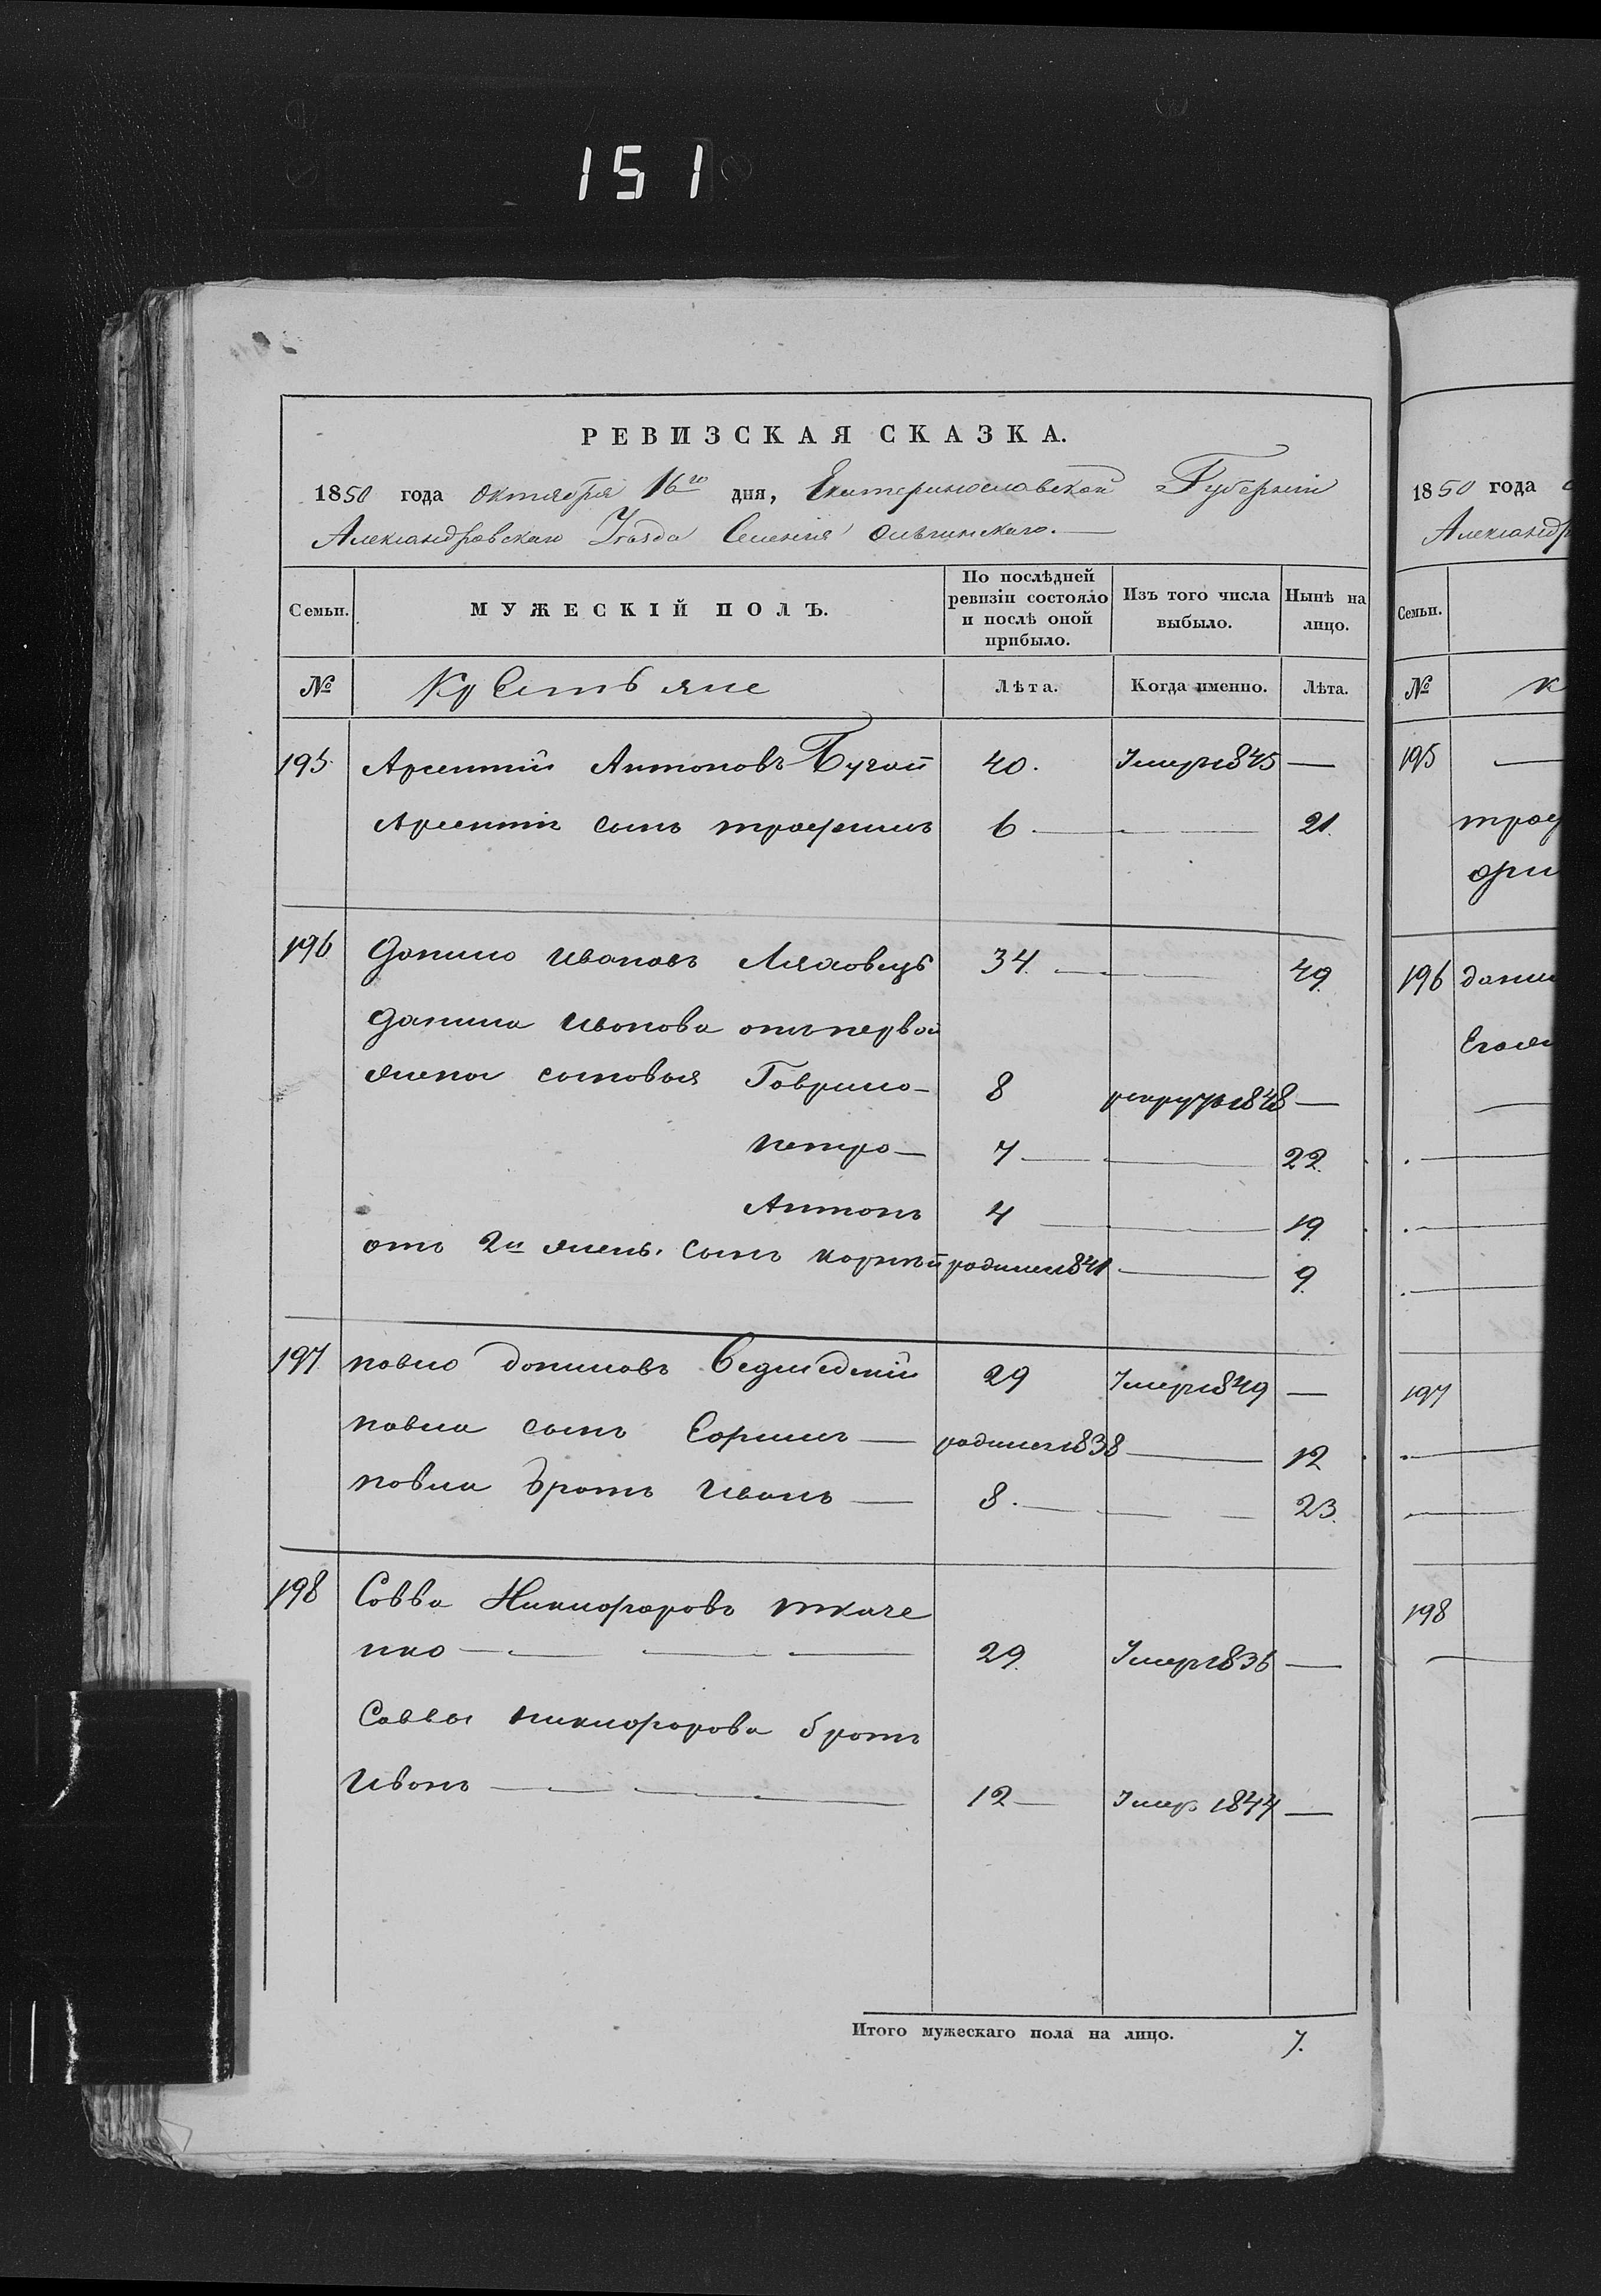 151
РЕВИЗСКАЯ СКАЗКА.
1850 года Октября 16го дня, Екатеринославской Губерніи
Александровскаго Уезда Селенія Ольгинскаго.
Семьи. МУЖЕСКІЙ ПОЛЪ. По послѣдней ревизіи состояло и послѣ оной прибыло. Изъ того числа выбыло. Нынѣ на лицо.
№ Крестьяне Лѣта. Когда именно. Лѣта.
195 Арсентій Антоновъ Бугай 40. Умер 1845 —
Арсентія сынъ трофимъ 6 — 21.
196 Данило Ивановъ Ляховецъ 34. — 49.
Данила Иванова отъ первой
жены сыновья Гаврило — 8 рекрут 1848 —
петро — 7 — 22.
Антонъ 4 — 19.
отъ 2й жены. Сынъ корней родилс 1841 — 9.
197 павло даниловъ Ведмедскій 29 Умер 1849 —
павла сынъ Ефимъ — родилс 1838 — 12
павла братъ Иванъ — 8. — 23.
198 Савва Никифоровъ ткаче
нко — 29. Умер 1836 —
Саввы никифорова братъ
Иванъ — 12 — Умер 1844 —
Итого мужескаго пола на лицо. 7.
1850 года
Александр
Семьи.
№ К
195 —
троф
196 дани
197
198